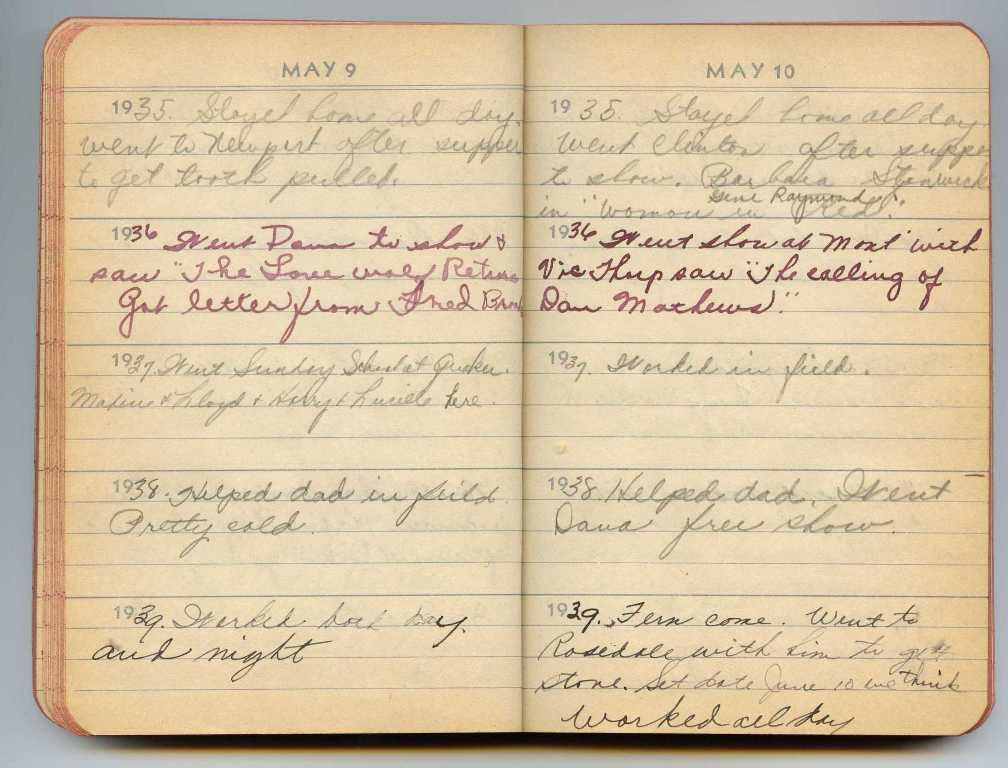 MAY 9
1935. Stayed home all day.
went to Newport after supper
to get tooth pulled.
1936 Went Dana to show &
saw "The Lone Wolf Returns
Got letter from Fred
1937. Went Sunday School at Quaker.
Maxine & Lloyd + Harry + Lucille here.
1938. Helped dad in feild
Pretty cold.
1939. Worked both day
and night
MAY 10
1935. Stayed home all day.
Went Clinton after supper
to show. Barbara Stanwick
Gene Raymond
in "Woman in Red."
1936 Went show at Mont with
Vic Thorp saw "The calling of
Dan Mathews".
1937. Worked in field.
1938. Helped dad. Went
Dana free show.
1939. Fern come. Went to
Rosedale with him to get
stone. Set date June 10 we think
Worked all day